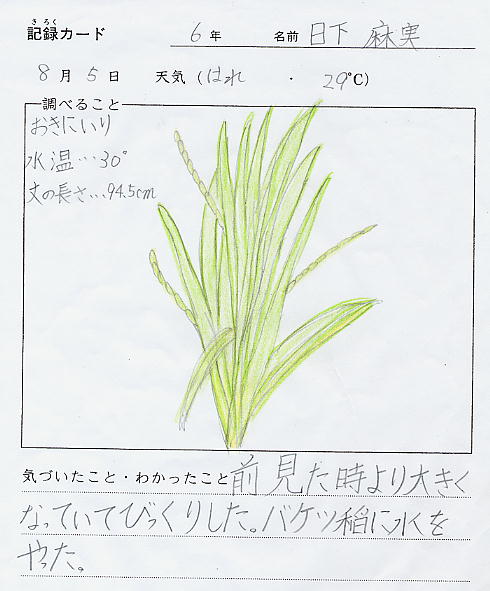 きろく
記録カード 6年 名前 日下 麻実
8月5日 天気(はれ ・ 29℃)
調べること
おきにいり
水温…30°
丈の長さ…94.5cm
気づいたこと・わかったこと前見た時より大きく
なっていてびっくりした。バケツ稲に水を
やった。